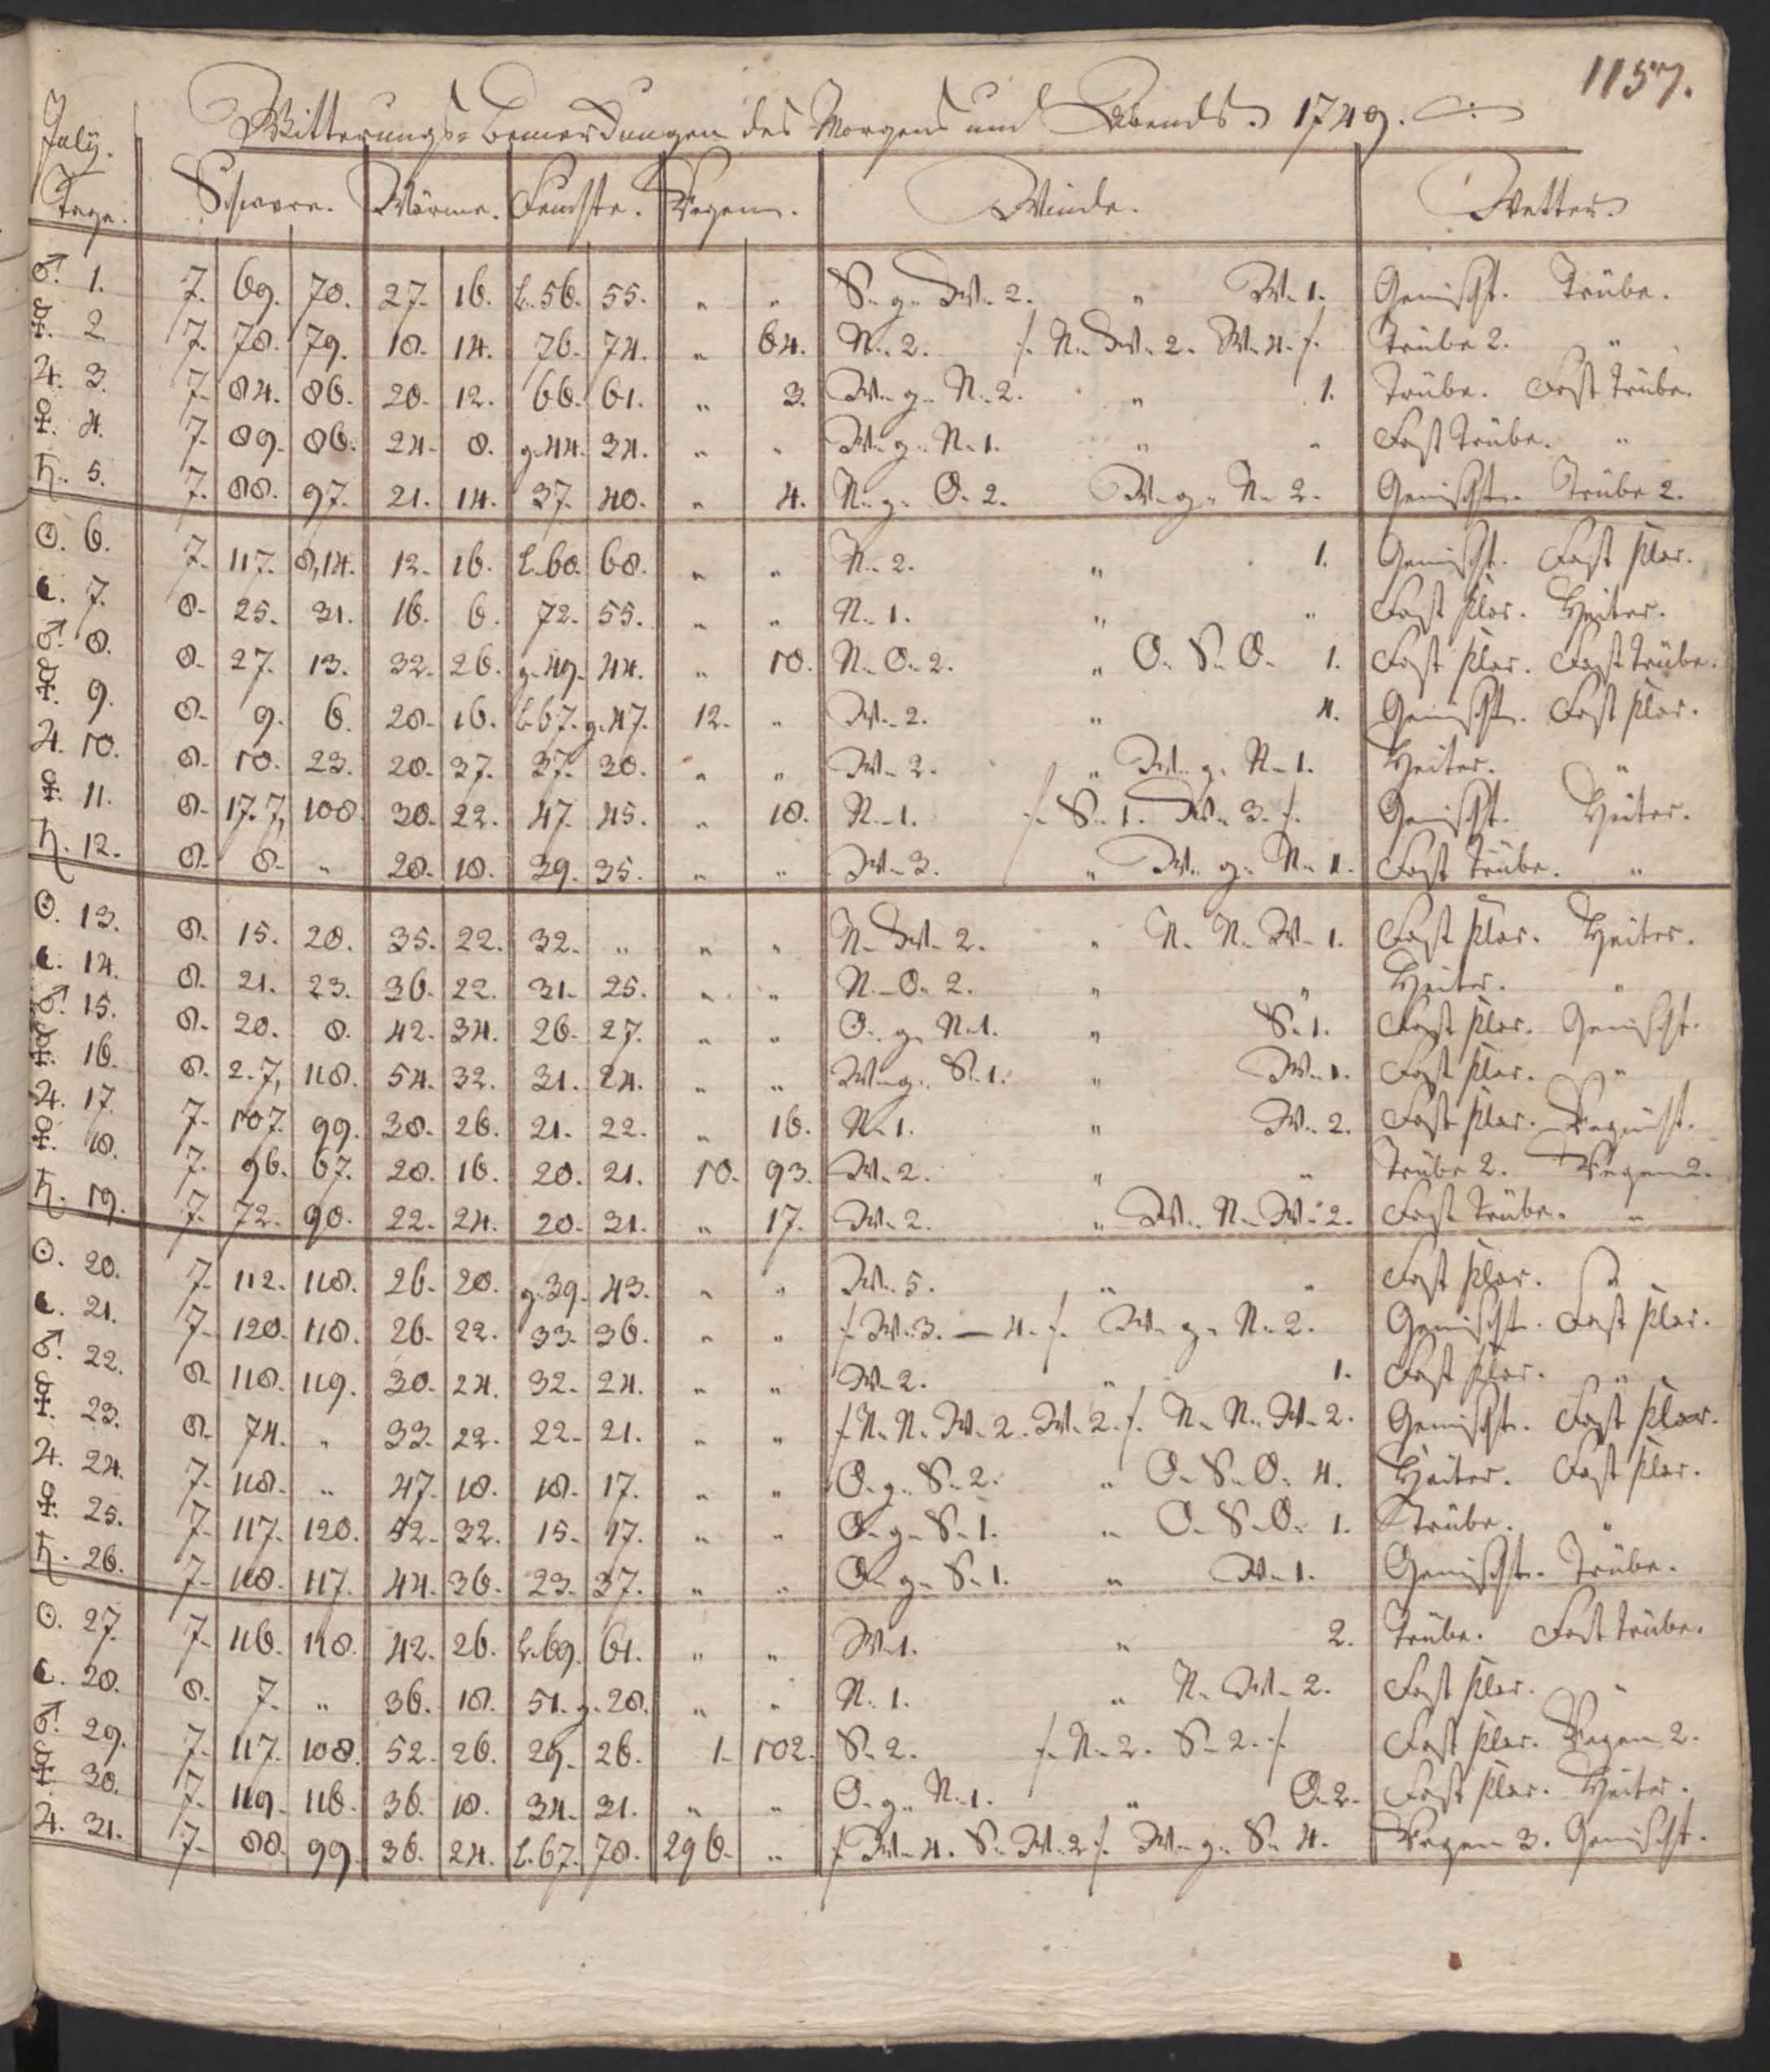 1157.
July. Witterungs-Bemerckungen des Morgens und Abends. 1749.
Tage. Schwere. Wärme. Feuchte. Regen. Winde. Wetter.
♂. 1. 7. 69. 70. 27. 16. l. 56. 55. „ „ S. g. W. 2. „ W. 1. Gemischt. Trübe.
☿. 2 7. 78. 79. 18. 14. 76. 74. „ 64. N. 2. /. N. W. 2. W. 4. /. Trübe 2. „
♃. 3. 7. 84. 86. 20. 12. 66. 61. „ 3. W. g. N. 2. „ 1. Trübe. Fast trübe.
♀. 4. 7. 89. 86. 24. 8. g. 44. 34. „ „ W. g. N. 1. „ „ Fast trübe. „
♄. 5. 7. 88. 97. 21. 14. 37. 40. „ 4. N. g. O. 2. W. g. N. 2. Gemischt. Trübe 2.
☉. 6. 7. 117. 8,14. 12. 16. l. 60. 68. „ „ N. 2. „ 1. Gemischt. Fast klar.
☾. 7. 8. 25. 31. 16. 6. 72. 55. „ „ N. 1. „ „ Fast klar. Heiter.
♂. 8. 8. 27. 13. 32. 26. g. 49. 44. „ 10. N. O. 2. „ O. S. O. 1. Fast klar. Fast trübe.
☿. 9. 8. 9. 6. 28. 16. l. 67. g. 47. 12. „ W. 2. „ 4. Gemischt. Fast klar.
♃. 10. 8. 10. 23. 28. 37. 37. 30. „ „ W. 2. „ W. g. N. 1. Heiter. „
♀. 11. 8. 17. 7, 108. 30. 22. 47. 45. „ 18. N. 1. /. S. 1. W. 3. /. Gemischt. Heiter.
♄. 12. 8. 8. „ 28. 18. 39. 35. „ „ W. 3. „ W. g. N. 1. Fast trübe. „
☉. 13. 8. 15. 20. 35. 22. 32. „ „ „ N. W. 2. „ N. N. W. 1. Fast klar. Heiter.
☾. 14. 8. 21. 23. 36. 22. 31. 25. „ „ N. O. 2. „ „ Heiter. „
♂. 15. 8. 20. 8. 42. 34. 26. 27. „ „ O. g. N. 1. „ S. 1. Fast klar. Gemischt.
☿. 16. 8. 2. 7, 118. 54. 32. 31. 24. „ „ W. g. S. 1. „ W. 1. Fast klar. „
♃. 17. 7. 107. 99. 38. 26. 21. 22. „ 16. N. 1. „ W. 2. Fast klar.
♀. 18. 7. 96. 67. 28. 16. 20. 21. 10. 93. W. 2. „ „ Trübe 2. Regen 2.
♄. 19. 7. 72. 90. 22. 24. 20. 31. „ 17. W. 2. „ W. N. W. 2. Fast trübe. „
☉. 20. 7. 112. 118. 26. 20. g. 39. 43. „ „ W. 5. „ „ Fast klar. „
☾. 21. 7. 120. 118. 26. 22. 33. 36. „ „ /. W. 3. — 4. /. W. g. N. 2. Gemischt. Fast klar.
♂. 22. 8. 118. 119. 30. 24. 32. 24. „ „ W. 2. „ 1. Fast klar. „
☿. 23. 8. 74. „ 33. 22. 22. 21. „ „ /. N. N. W. 2. W. 2. /. N. N. W. 2. Gemischt. Fast klar.
♃. 24. 7. 118. „ 47. 18. 18. 17. „ „ O. g. S. 2. „ O. S. O. 4. Heiter. Fast klar.
♀. 25. 7. 117. 120. 52. 32. 15. 17. „ „ O. g. S. 1. „ O. S. O. 1. Trübe. „
♄. 26. 7. 118. 117. 44. 36. 23. 37. „ „ O. g. S. 1. „ W. 1. Gemischt. Trübe.
☉. 27. 7. 116. 118. 42. 26. l. 69. 61. „ „ W. 1. „ 2. Trübe. Fast trübe.
☾. 28. 8. 7. „ 36. 18. 51. g. 28. „ „ N. 1. „ N. W. 2. Fast klar. „
♂. 29. 7. 117. 108. 52. 26. 29. 26. 1. 102. S. 2. /. N. 2. S. 2. /. Fast klar. Regen 2.
☿. 30. 7. 119. 116. 36. 18. 34. 31. „ „ O. g. N. 1. „ O. 2. Fast klar. Heiter.
♃. 31. 7. 88. 99. 36. 24. l. 67. 78. 296. „ /. W. 4. S. W. 2 /. W. g. S. 4. Regen 3. Gemischt.